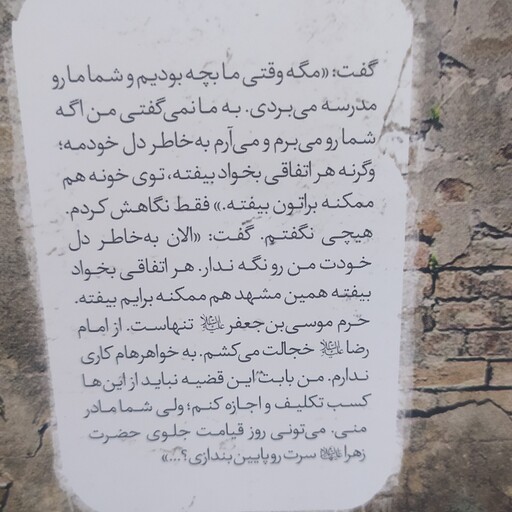 گفت: «مگه وقتی ما بچه بودیم و شما ما رو
مدرسه می‌بردی. به ما نمی‌گفتی من اگه
شما رو می‌برم و می‌آرم به‌خاطر دل خودمه؛
وگرنه هر اتفاقی بخواد بیفته، توی خونه هم
ممکنه براتون بیفته.» فقط نگاهش کردم.
هیچی نگفتم. گفت: «الان به‌خاطر دل
خودت من رو نگه ندار. هر اتفاقی بخواد
بیفته همین مشهد هم ممکنه برایم بیفته.
حرم موسی‌بن‌جعفر علیه‌السلام تنهاست. از امام
رضا علیه‌السلام خجالت می‌کشم. به خواهرهام کاری
ندارم. من بابت این قضیه نباید از این‌ها
کسب تکلیف و اجازه کنم؛ ولی شما مادر
منی. می‌تونی روز قیامت جلوی حضرت
زهرا سرت رو پایین بندازی؟...»